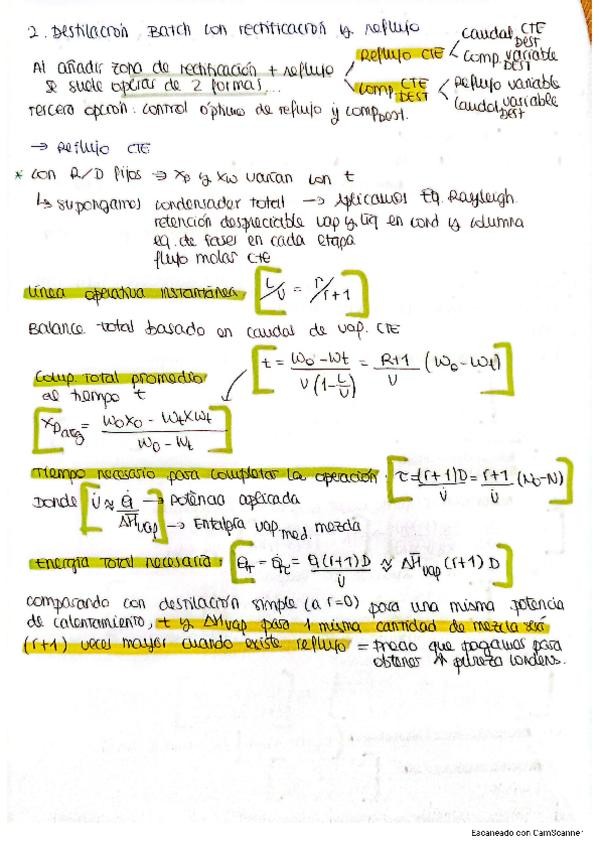 2. Destilación Batch con rectificación y reflujo
Al añadir zona de rectificación + reflujo
se suele operar de 2 formas...
Reflujo CTE < caudal DEST CTE
comp. DEST variable
comp. DEST CTE < Reflujo variable
caudal DEST variable
Tercera opción: control óptimo de reflujo y comp dest.
→ Reflujo CTE
* con R/D fijos ⇒ xD y xw varían con t
↳ supongamos condensador total → Aplicamos Eq. Rayleigh.
retención despreciable vap y liq en cond y columna
eq. de fases en cada etapa
flujo molar cte
Línea operativa instantánea: [L/V = r/r+1]
Balance total basado en caudal de vap. CTE
[t = Wo - Wt / V(1 - L/V) = R+1 / V (Wo - Wt)]
Comp. Total promedio
al tiempo t
[xD avg = WoXo - WtXwt / Wo - Wt]
Tiempo necesario para completar la operación: [τ = (r+1)D / V̇ = r+1 / V̇ (No - N)]
Donde [V̇ ≈ Q̇ / ΔH̄vap] → Potencia aplicada
→ Entalpía vap med. mezcla
Energía total necesaria: [QT = Q̇τ = Q̇(r+1)D / V̇ ≈ ΔH̄vap (r+1) D]
comparando con destilación simple (a r=0) para una misma potencia
de calentamiento, t y ΔHvap para 1 misma cantidad de mezcla será
(r+1) veces mayor cuando existe reflujo = precio que pagamos para
obtener ↑ pureza condens.
Escaneado con CamScanner